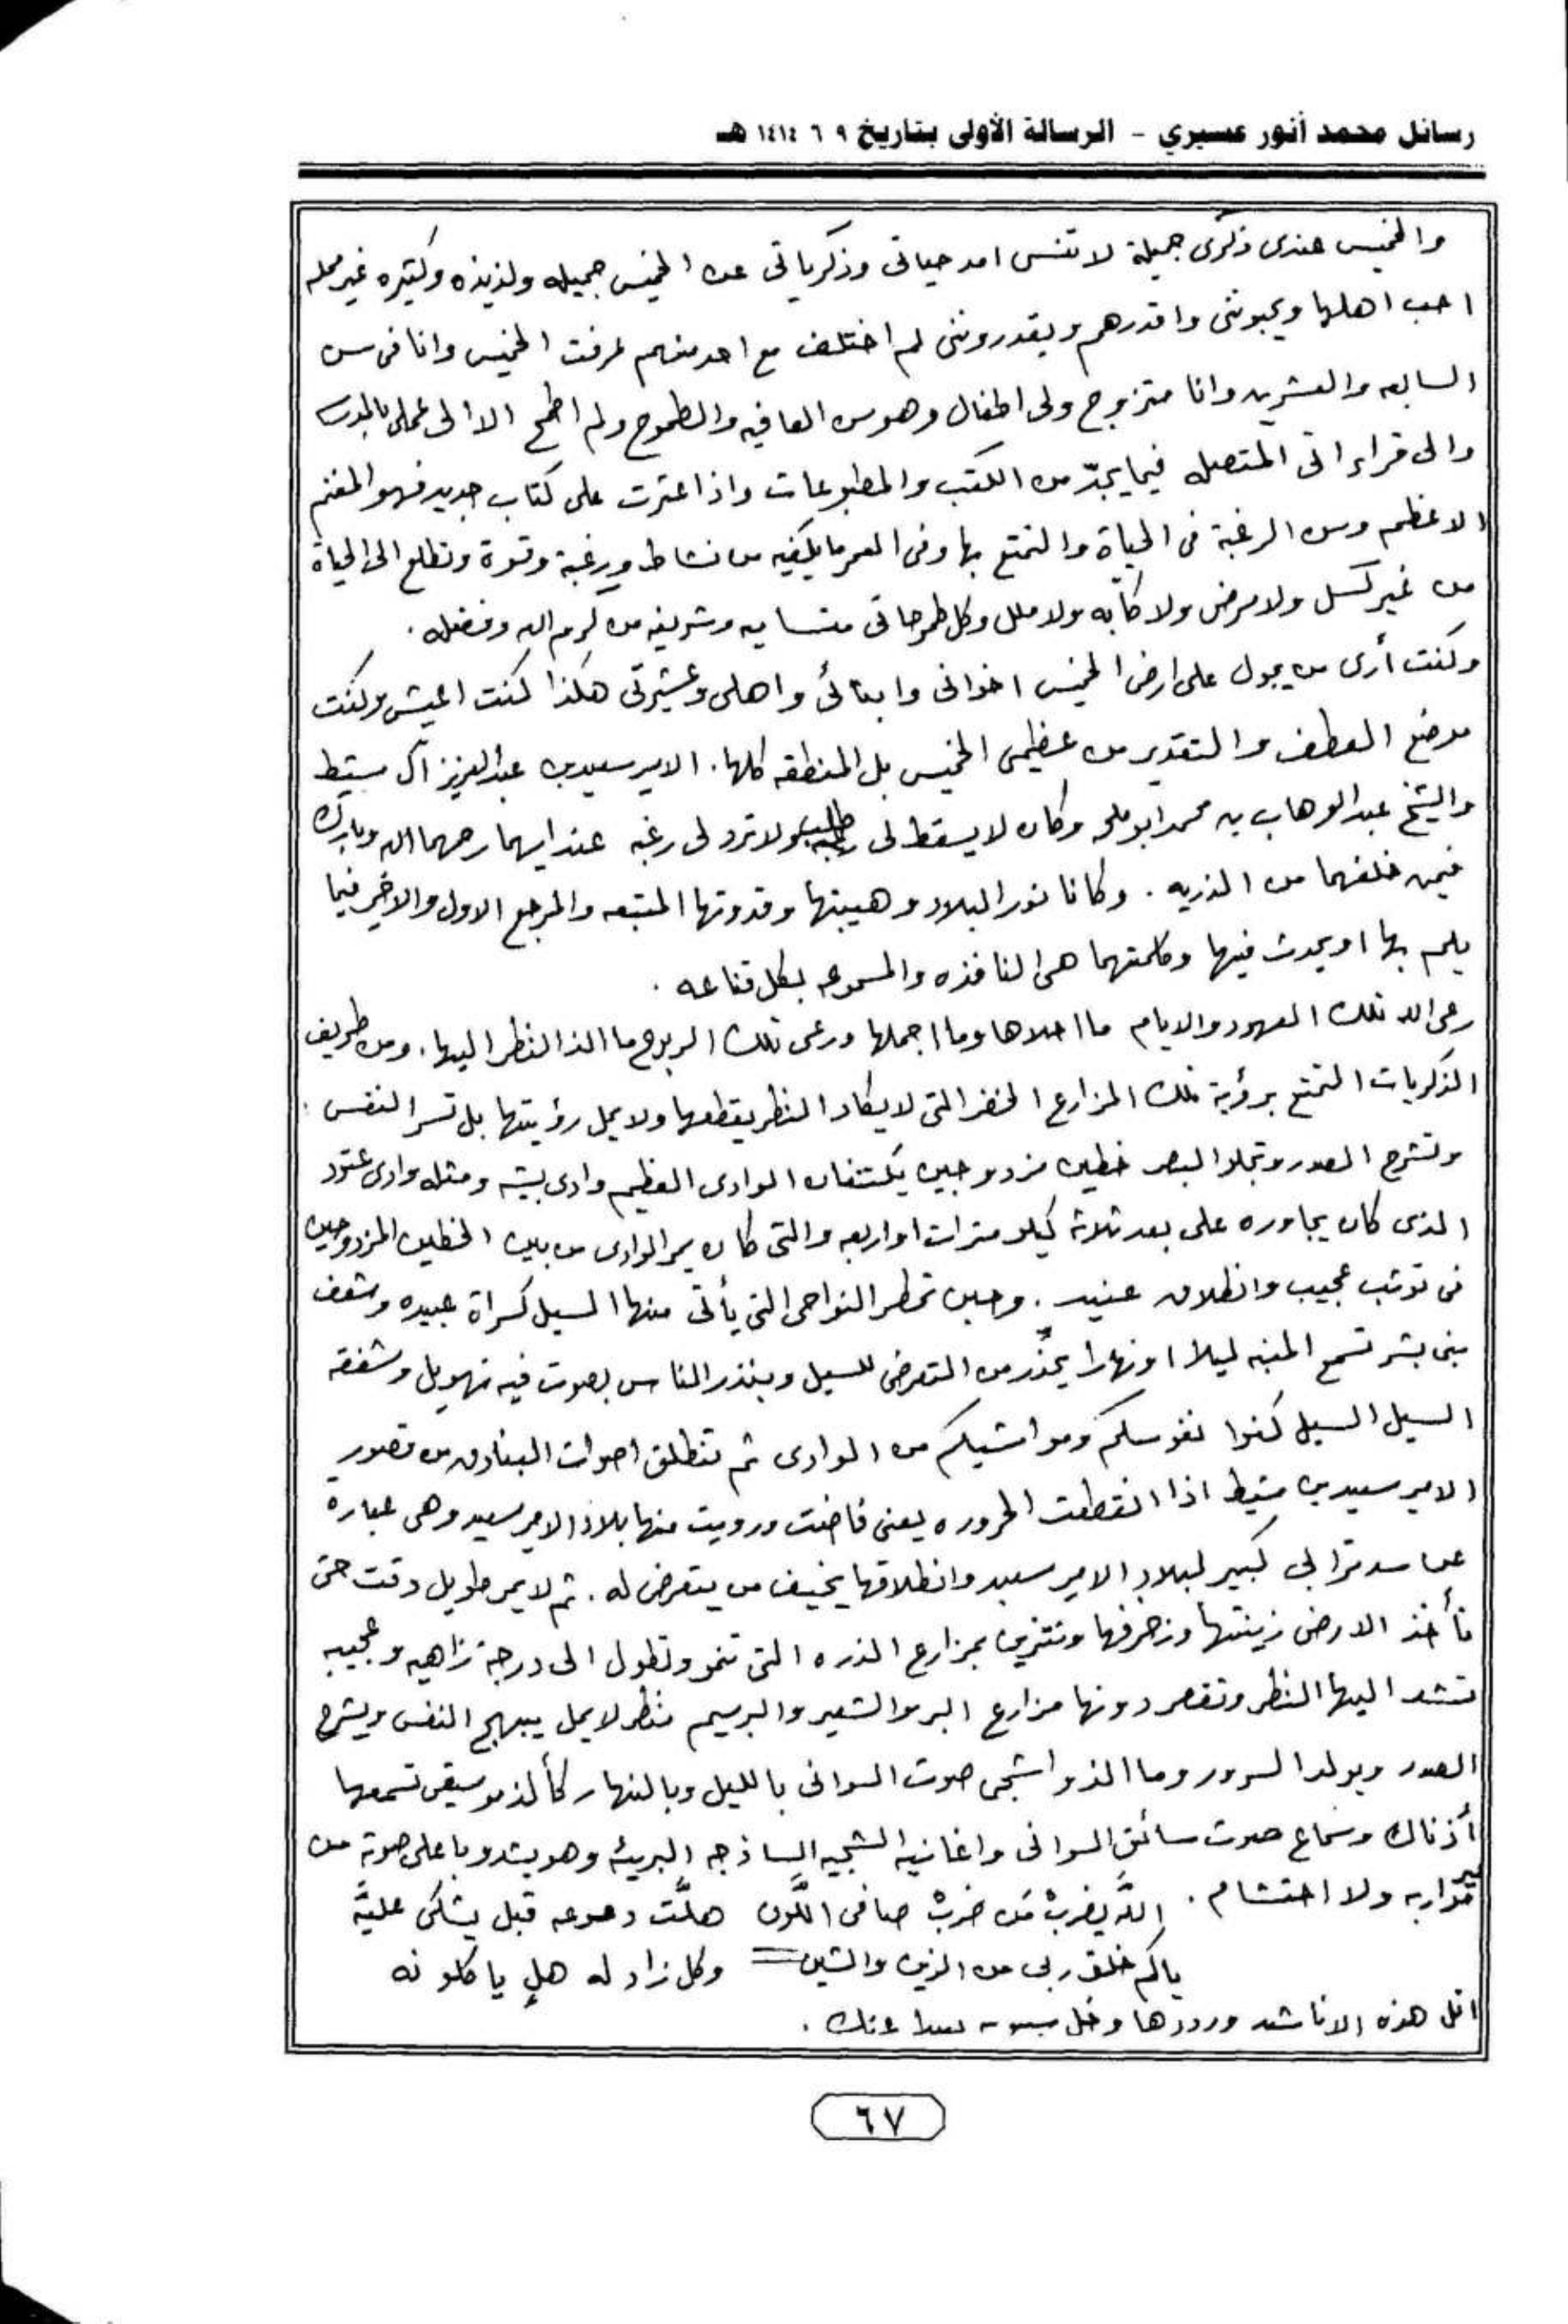 رسائل محمد أنور عسيري - الرسالة الأولى بتاريخ ٩ ٦ ١٤١٤ هـ
والخميس عندى ذكرى جميلة لا تنسى امد حياتى وذكرياتى عن الخميس جميله ولذيذه وكثيره غير ممله
احب اهلها ويحبوننى واقدرهم ويقدروننى لم اختلف مع احد منهم عرفت الخميس وانا فى سن
السابعه والعشرين وانا متزوج ولى اطفال وهو سن العافيه والطموح ولم اطمح الا الى عملى بالمدرسه
والى قراءاتى المتصله فيما يجدّ من الكتب والمطبوعات واذا عثرت على كتاب جديد فهو المغنم
الاعظم وسن الرغبة فى الحياة والتمتع بها وفى العمر ما يكفيه من نشاط ورغبة وقوة وتطلع الى الحياة
من غير كسل ولا مرض ولا كآبه ولا ملل وكل طموحاتى متساميه وشريفه من كرم الله وفضله .
وكنت أرى من يجول على ارض الخميس اخوانى وابنائى واهلى وعشيرتى هكذا كنت اعيش وكنت
موضع العطف والتقدير من عظيمى الخميس بل المنطقه كلها . الامير سعيد بن عبدالعزيز آل مشيط
والشيخ عبدالوهاب بن محمد ابو ملحه وكان لا يسقط لى طلب ولا ترد لى رغبه عند ايهما رحمهما الله وبارك
فيمن خلفهما من الذريه . وكانا نور البلاد وهيبتها وقدوتها المتبعه والمرجع الاول والاخير فيما
يلم بها او يحدث فيها وكلمتهما هى النافذه والمسموعه بكل قناعه .
رعى الله تلك العهود والايام ما احلاها وما اجملها ورعى تلك الربوع ما الذ النظر اليها . ومن طريف
الذكريات التمتع برؤية تلك المزارع الخضر التى لا يكاد النظر يقطعها ولا يمل رؤيتها بل تسر النفس
وتشرح الصدر وتجلو البصر خطين مزدوجين يكتنفان الوادى العظيم وادى بيشه ومثله وادى عتود
الذى كان يجاوره على بعد ثلاثة كيلو مترات او اربعه والتى كان يمر الوادى من بين الخطين المزدوجين
فى توثب عجيب وانطلاق عنيد . وحين تمطر النواحى التى يأتى منها السيل كسراة عبيده وشعف
بنى بشر تسمع المنبه ليلا او نهارا يحذّر من التعرض للسيل وينذر الناس بصوت فيه تهويل وشفقه
السيل السيل كفوا نفوسكم ومواشيكم من الوادى ثم تنطلق اصوات البنادق من قصور
الامير سعيد بن مشيط اذا انقطعت الحروره يعنى فاضت ورويت منها بلاد الامير سعيد وهى عبارة
عن سد ترابى كبير لبلاد الامير سعيد وانطلاقها يخيف من يتعرض له . ثم لا يمر طويل وقت حتى
تأخذ الارض زينتها وزخرفها وتتزين بمزارع الذره التى تنمو وتطول الى درجة زاهيه وعجيبه
تشد اليها النظر وتقصر دونها مزارع البر والشعير والبرسيم منظر لا يمل يبهج النفس ويشرح
الصدر ويولد السرور وما الذ واشجى صوت السوانى بالليل وبالنهار كألذ موسيقى تسمعها
أذناك وسماع صوت سائق السوانى واغانيه الشجيه الساذجه البريئه وهو يشدو باعلى صوته من
غير مواربه ولا احتشام . الله يضربْ مَن ضربْ صافى اللّون هلّت دموعه قبل يشكى عليَّه
ياكم خلق ربى من الزين والشين وكل زاد له هلٍ ياكلونه
اتل هذه الاناشد ورددها وخل عنك .
٦٧